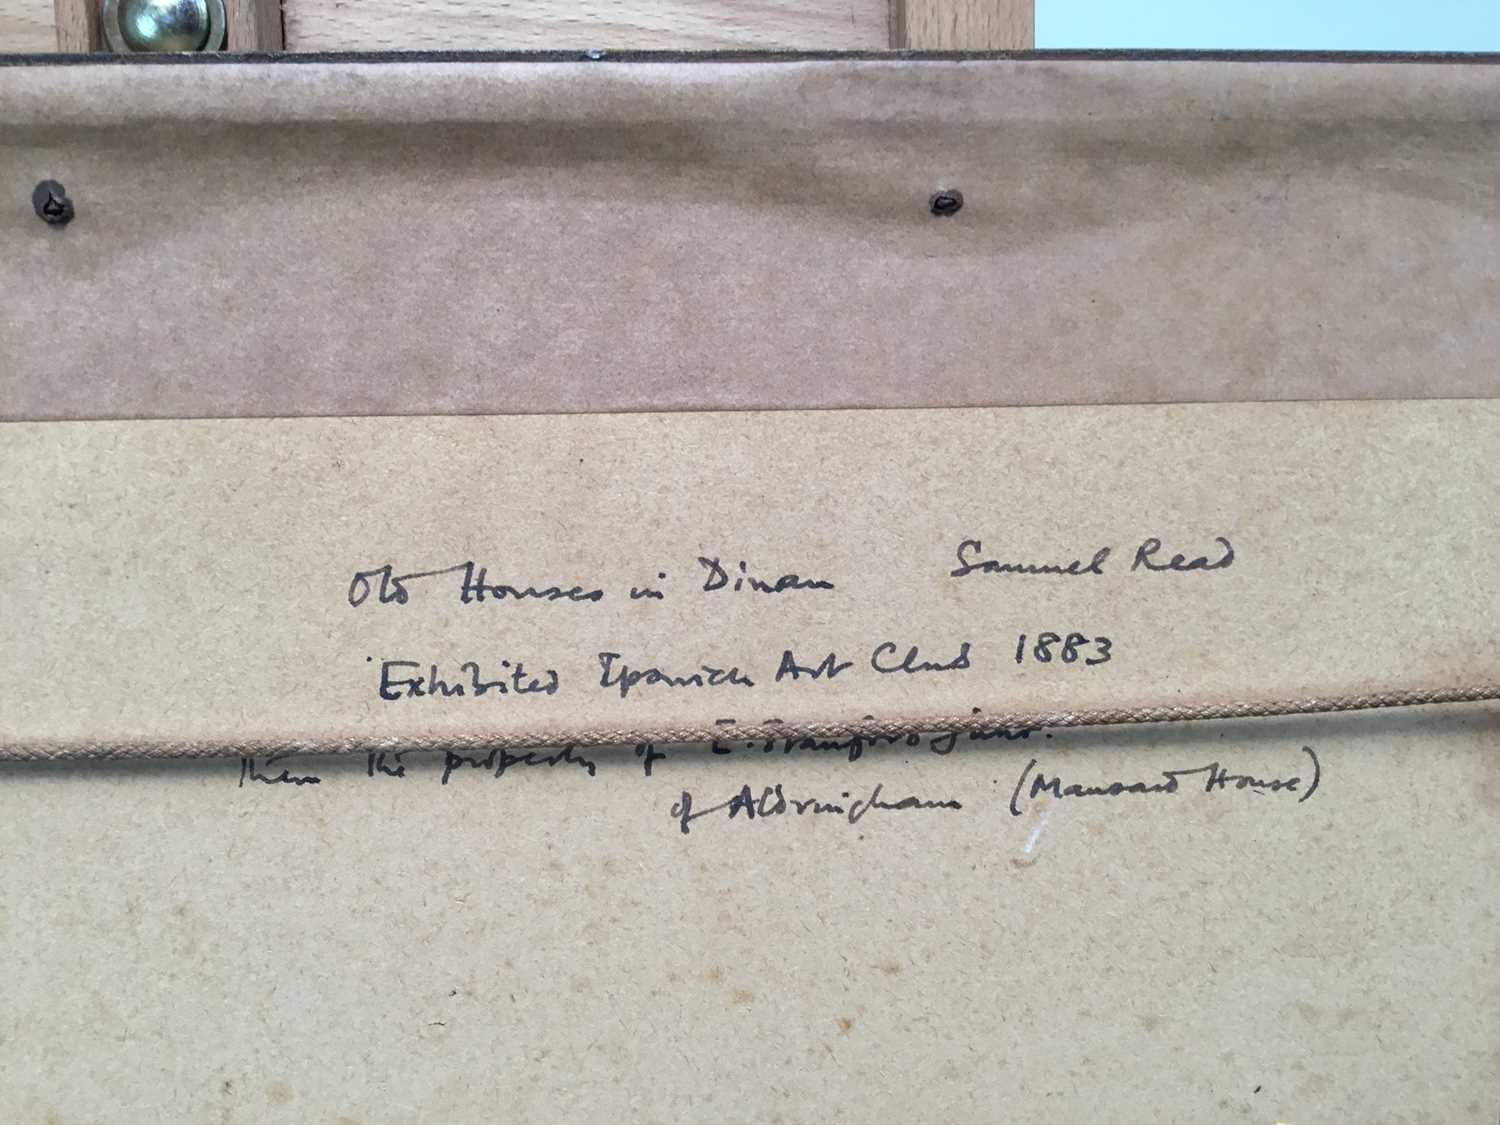 Old Houses in Dinan Samuel Read
Exhibited Ipswich Art Club 1883
then the property of E.
of Aldringham (Mansard House)